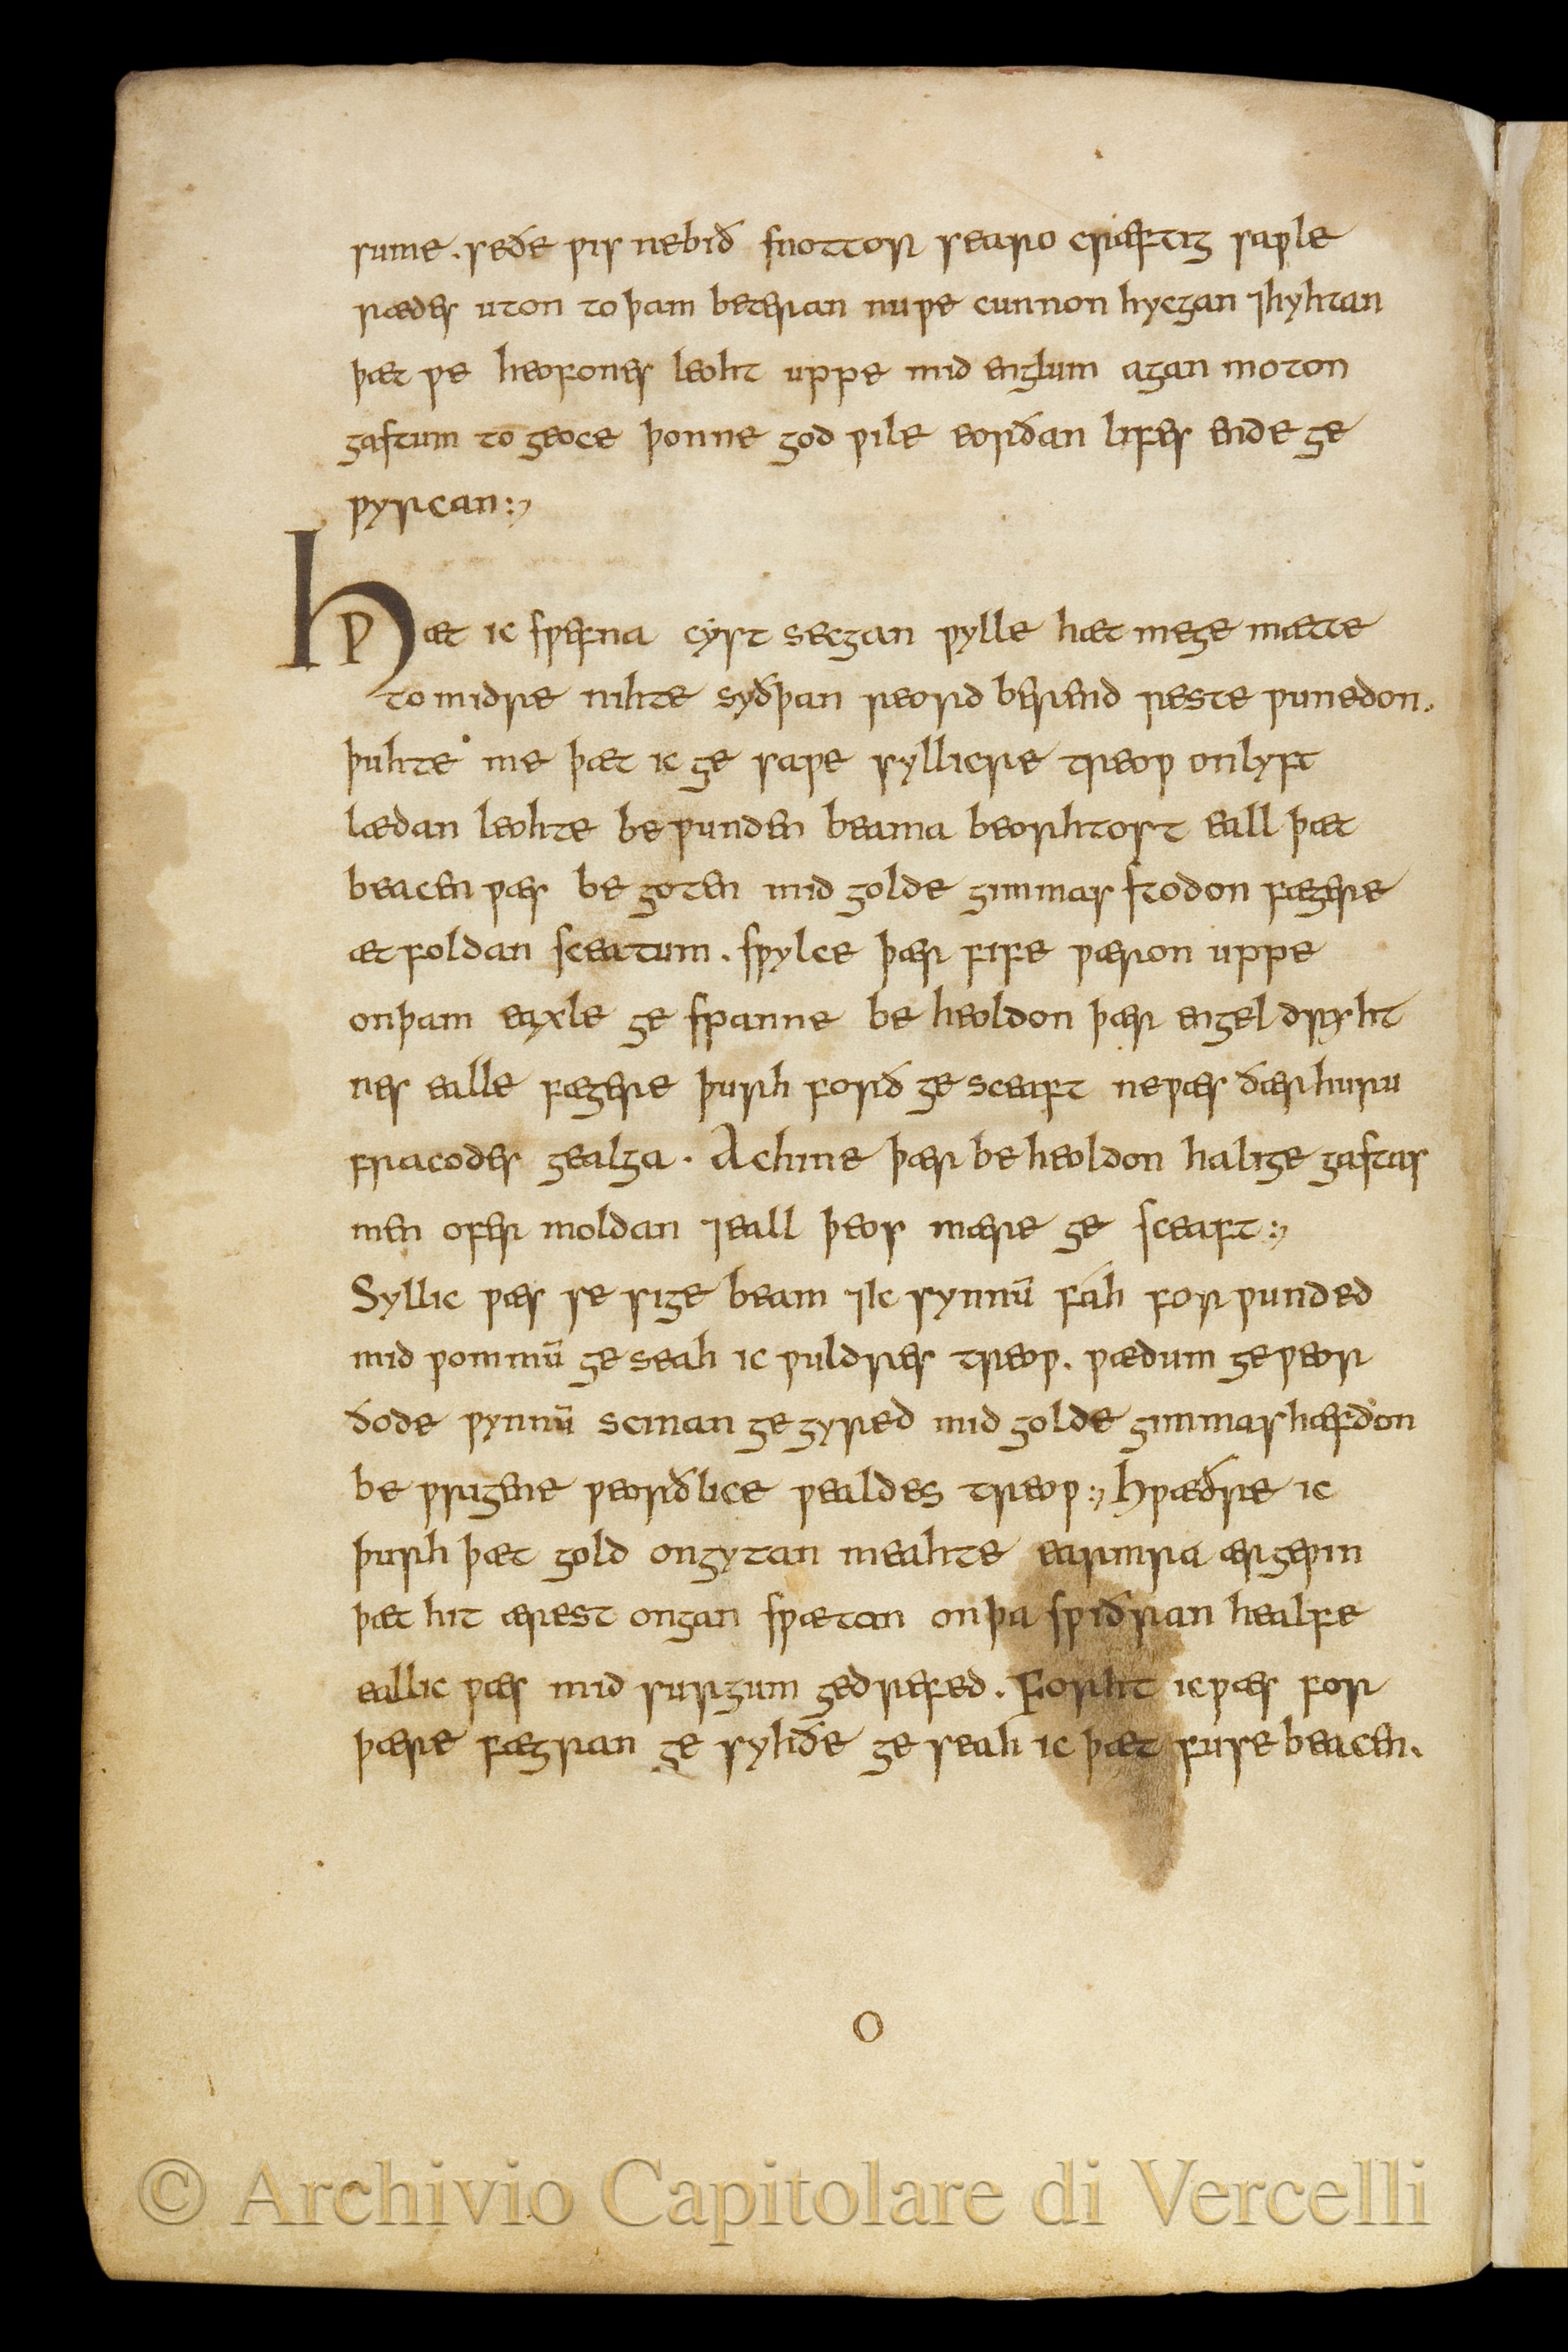 sume . seðe ƿis nebið snottor searo cræftig saƿle
rædes uton to þam beteran nuƿe cunnon hycgan ⁊hyhtan
þæt ƿe heofones leoht uppe mid englum agan moton
gastum to geoce þonne god ƿile eorðan lifes ende ge
ƿyrcan :,
Hƿæt ic sƿefna cyst secgan ƿylle hæt mege mætte
to midre nihte syðþan reord berend reste ƿunedon .
þuhte me þæt ic ge saƿe syllicre treoƿ onlyft
lædan leohte be ƿunden beama beorhtost eall þæt
beacen ƿæs be goten mid golde gimmas stodon fægere
æt foldan sceatum . sƿylce þær fife ƿæron uppe
onþam eaxle ge spanne be heoldon þær engel dryht
nes ealle fægere þurh forð ge sceaft neƿæs ðær huru
fracodes gealga . Achine þær be heoldon halige gastas
men ofer moldan ⁊eall þeos mære ge sceaft :,
Syllic ƿæs se sige beam ⁊Ic synnū fáh for ƿunded
mid ƿommū ge seah ic ƿuldres treoƿ . ƿædum ge ƿeor
ðode ƿynnū scinan ge gyred mid golde gimmas hæfdon
be ƿrigene ƿeorðlice ƿealdes treoƿ :, Hƿæðre ic
þurh þæt gold ongytan meahte earmra ærgeƿin
þæt hit ærest ongan sƿætan onþa sƿiðran healfe
eallic ƿæs mid surgum gedrefed . Forht icƿæs for
þære fægran ge syhðe ge seah ic þæt fuse beacen .
O
© Archivio Capitolare di Vercelli